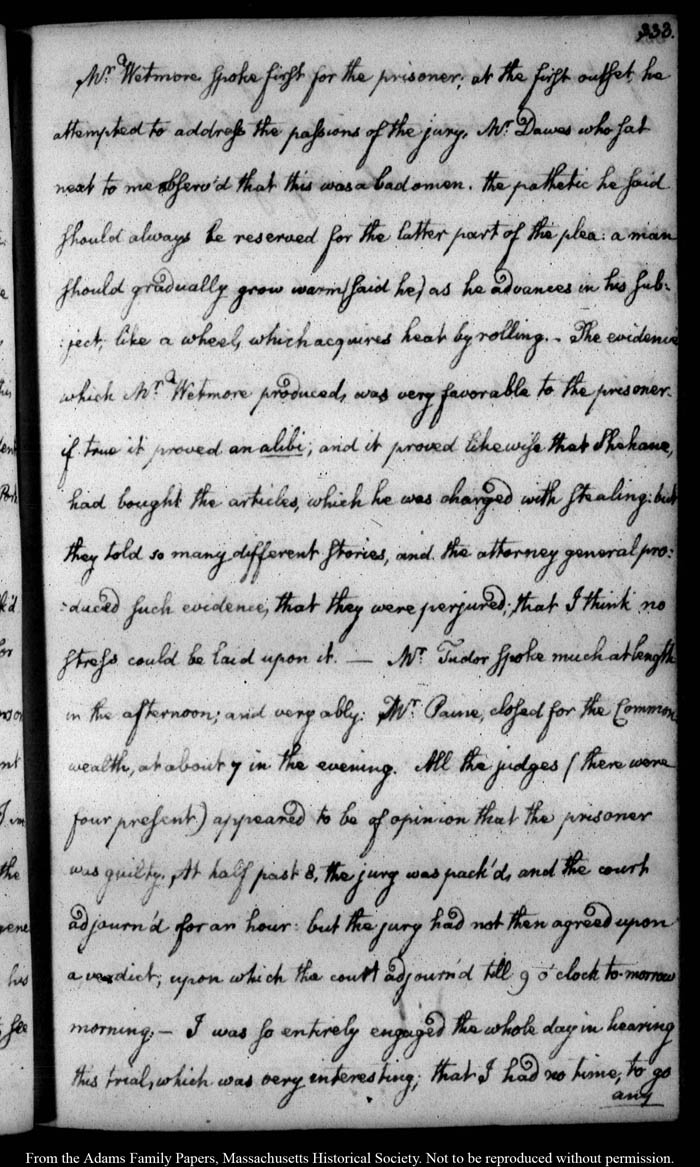 333.
Mr. Wetmore spoke first for the prisoner, at the first outset, he
attempted to address the passions of the jury. Mr. Dawes who sat
next to me observ'd that this was a bad omen. the pathetic he said
should always be reserved for the latter part of the plea: a man
should gradually grow warm (said he) as he advances in his sub:
:ject, like a wheel, which acquires heat by rolling. - The evidence
which Mr. Wetmore produced, was very favorable to the prisoner.
if true it proved an alibi; and it proved likewise that Shehane,
had bought the articles, which he was charged with stealing: but
they told so many different stories, and the attorney general pro:
:duced such evidence, that they were perjured; that I think no
stress could be laid upon it. — Mr. Tudor spoke much at length
in the afternoon; and very ably: Mr. Paine, closed for the Common
wealth, at about 7 in the evening. All the judges (there were
four present.) appeared to be of opinion that the prisoner
was guilty. At half past 8, the jury was pack'd, and the court
adjourn'd for an hour: but the jury had not then agreed upon
a verdict; upon which the court adjourn'd till 9 o'clock to-morrow
morning. — I was so entirely engaged the whole day in hearing
this trial, which was very interesting; that I had no time, to go
any
From the Adams Family Papers, Massachusetts Historical Society. Not to be reproduced without permission.